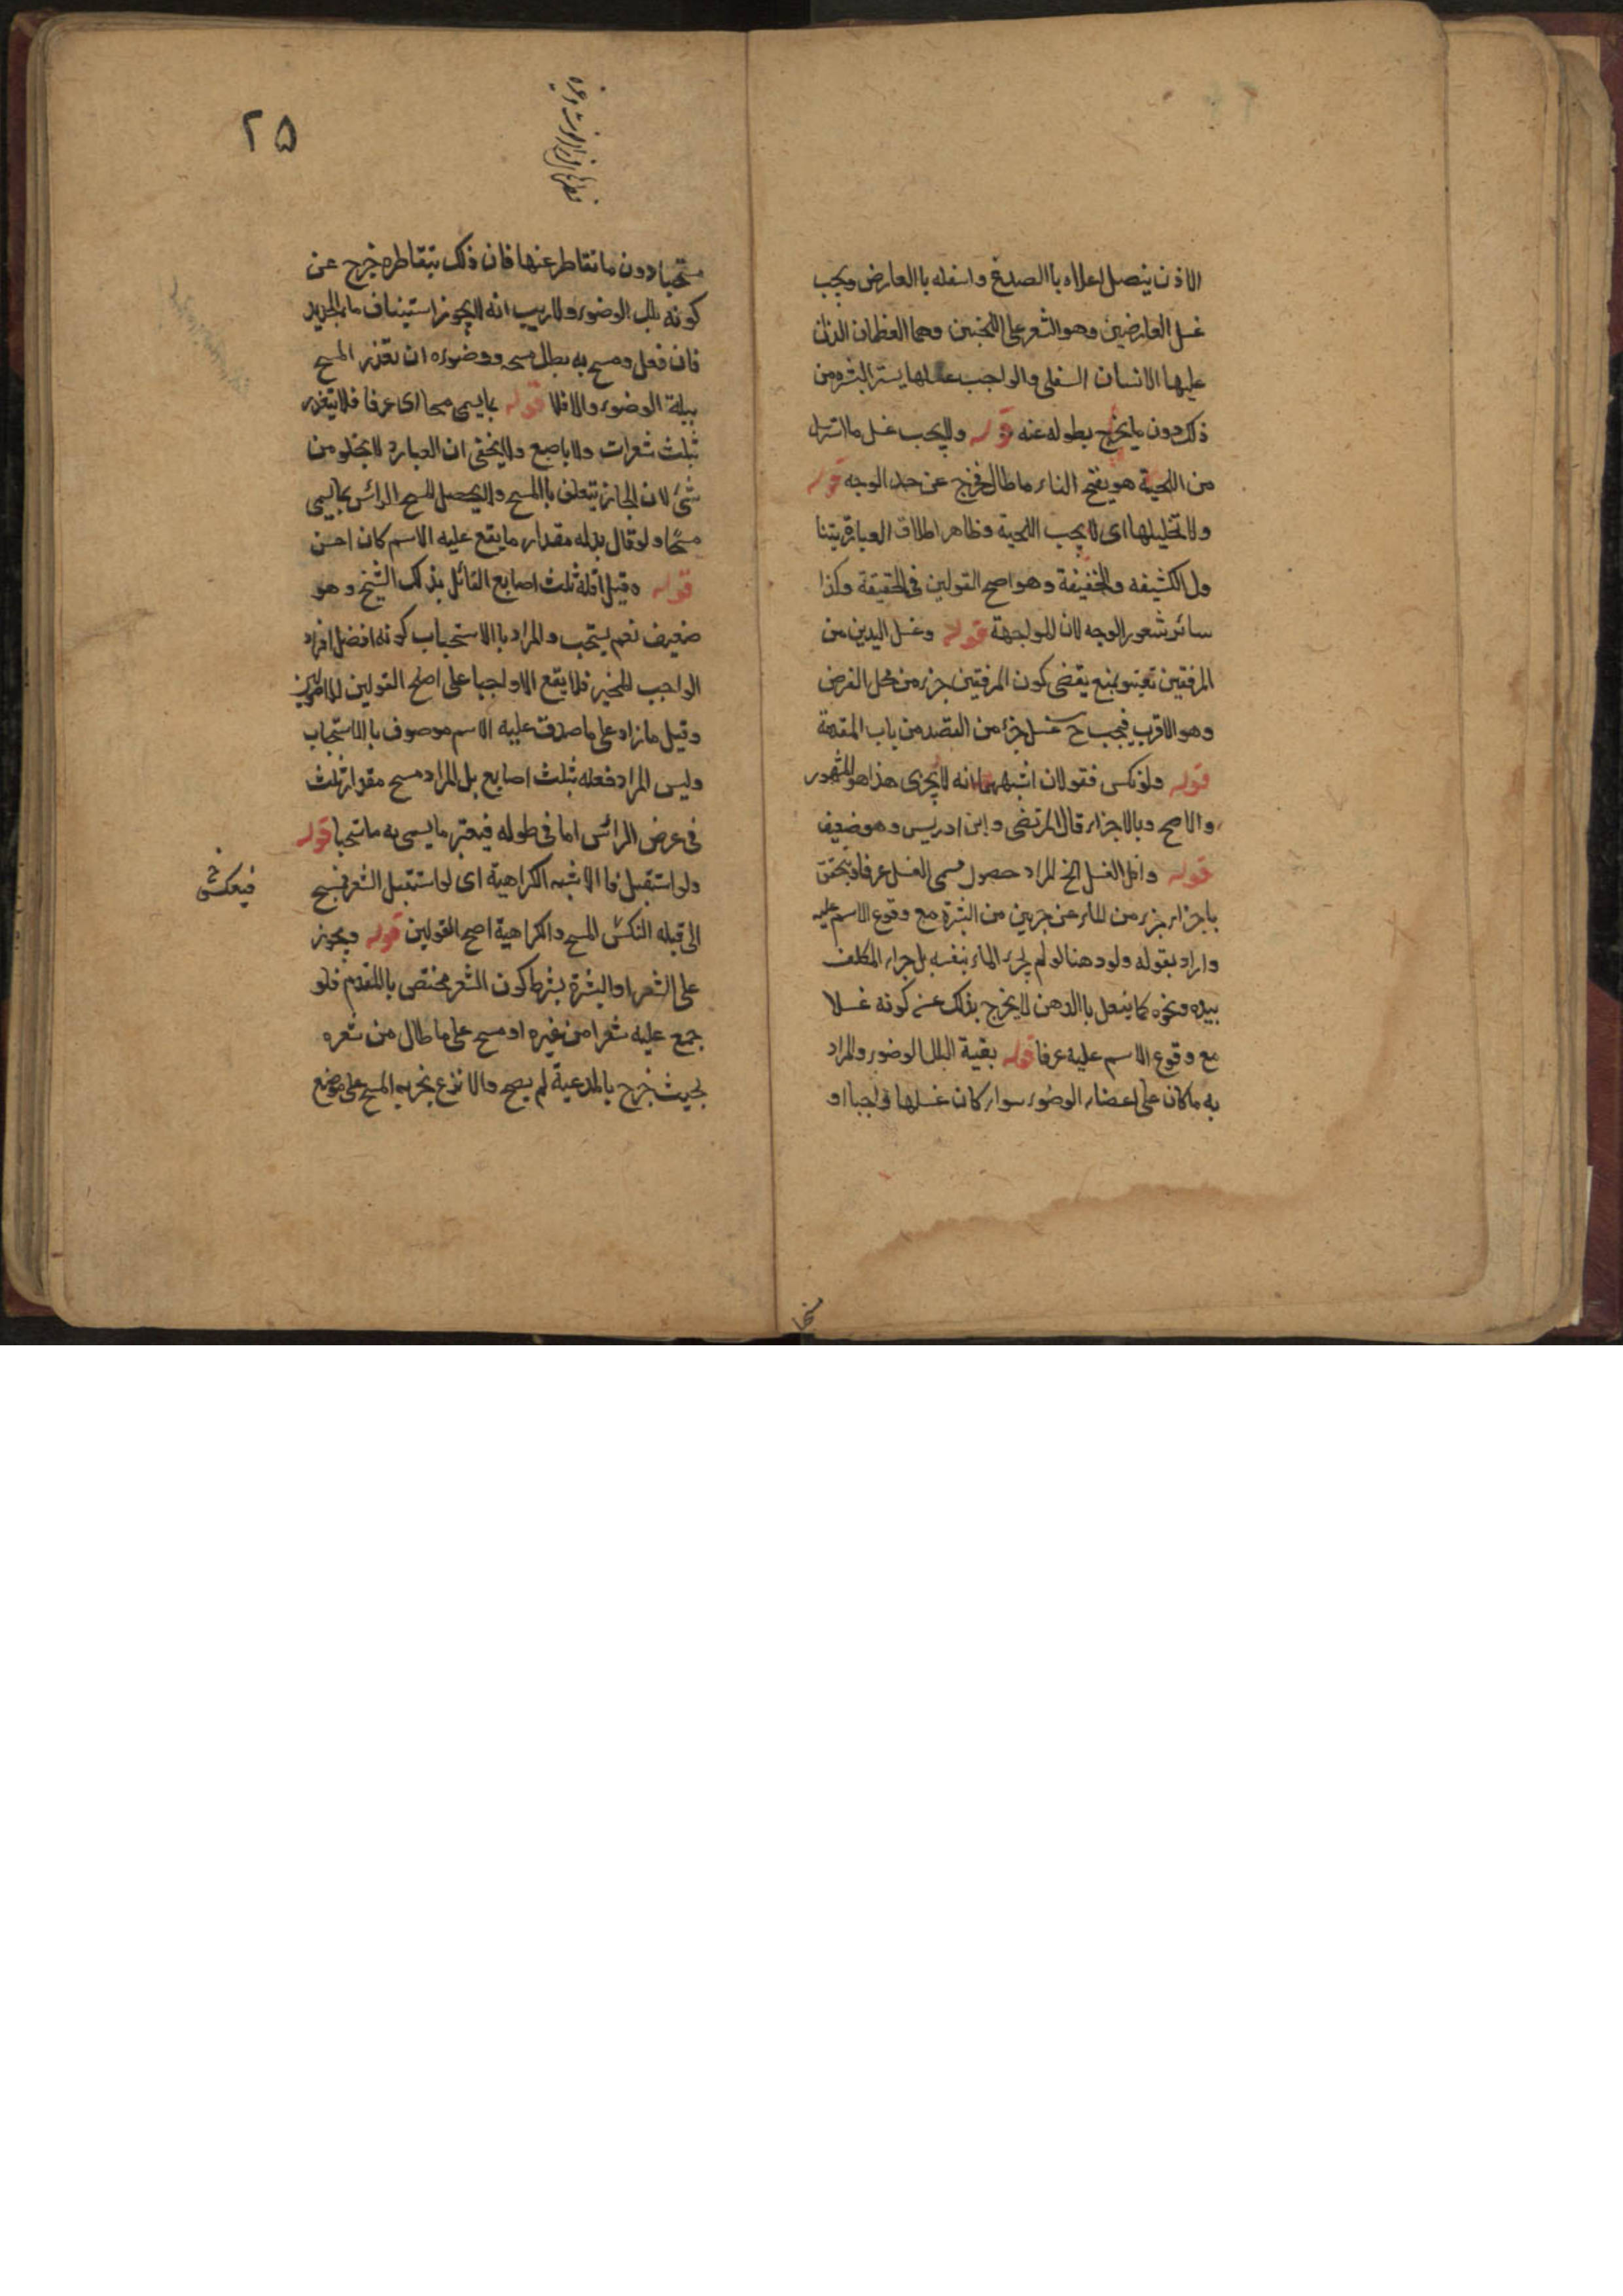 الاذن يتصل اعلاه باالصدغ واسفله باالعارض ويجب
غسل العارضين وهو الشعر على اللحيين وهما العظمان الذان
عليها الاسنان السفلى والواجب غسلها يستر البشره من
ذلك دون ما يخرج بطوله عنه قوله ولا يجب غسل ما استرسل
من اللحية هو بفتح التاء ما طال فخرج عن حد الوجه قوله
ولا تخليلها اى لا يجب اللحية وظاهر اطلاق العبا
الكثيفه والخفيفة وهو اصح القولين فى الحقيقة وكذا
سائر شعور الوجه لان المواجهة قوله وغسل اليدين من
المرفقين يقضى كون المرفقين جزء من محل الفرض
وهو الاقرب فيجب ح غسل جزء من العضد من باب المقدمة
قوله ولو نكس فقولان اشبههما انه لا يجزى هذا هو المشهور
والاصح وبالاجزاء قال المرتضى وابن ادريس وهو ضعيف
قوله واقل الغسل الخ المراد حصول مسمى الغسل عرفا ويتحقق
باجزاء جزء من الماء عن جزءين من البشرة مع وقوع الاسم عليه
واراد بقوله ولو دهنا لو لم يجر الماء بنفسه بل جراه المكلف
بيده ونحوه كما يفعل باالدهن لا يخرج بذلك عن كونه غسلا
مع وقوع الاسم عليه عرفا قوله بقية البلل الوضوء والمراد
به ما كان على اعضاء الوضوء سواء كان غسلها واجبا او
٢٥
مستحبا دون ما تقاطر عنها فان ذلك بتقاطره خرج عن
كونه بلل الوضوء ولا ريب انه لا يجوز استيناف ماء الجديد
فان فعل ومسح به بطل مسحه ووضوءه ان تعذر المسح
ببلة الوضوء والا فلا قوله بما يسمى مسحا اى عرفا فلا يتقدر
بثلث شعرات ولا باصبع ولا يخفى ان العبارة لا يخلو من
شئ لان الجار يتعلق باالمسح ولا يحصل المسح الرائس بما يسمى
مسحا ولو قال بدله مقدار ما يقع عليه الاسم كان احسن
قوله وقيل اقله ثلث اصابع القائل بذلك الشيخ وهو
ضعيف نعم يستحب والمراد باالاستحباب كونه افضل افراد
الواجب المخير فلا يقع الا واجبا على اصح القولين
وقيل ما زاد على ما صدق عليه الاسم موصوف باالاستحباب
وليس المراد فعله بثلث اصابع بل المراد مسح مقدار ثلث
فى عرض الرائس اما فى طوله فيعتبر ما يسمى به ماسحا قوله
ولو استقبل فا الاشبه الكراهية اى لو استقبل الشعر فمسح
فيعكس
الى قبله النكس المسح والكراهية اصح القولين قوله ويجوز
على الشعر او البشرة بشرط كون الشعر مختص باالمقدم فلو
جمع عليه شعرا من غيره او مسح على ما طال من شعره
بحيث خرج بالمدعية لم يصح والانزع يجزيه المسح على موضع